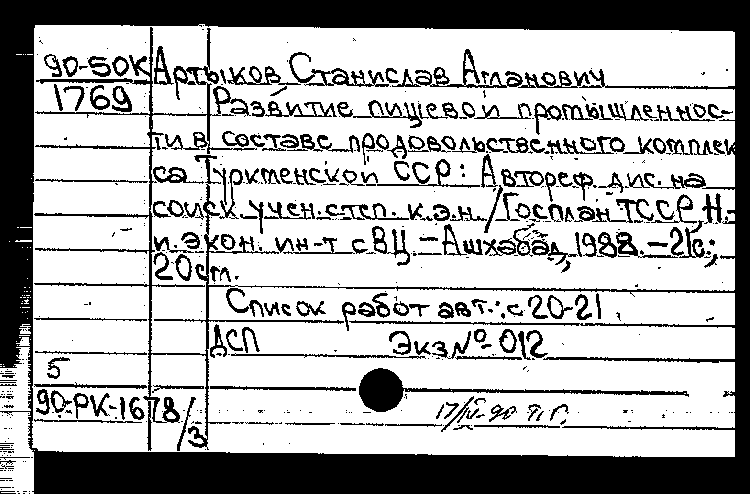 90-50К Артыков Станислав Агланович
1769 Развитие пищевой промышленнос-
ти в составе продовольственного комплек
са Туркменской ССР: Автореф. дис. на
соиск. учен. степ. к.э.н. / Госплан ТССР, Н.-
и. экон. ин-т с ВЦ. - Ашхабад, 1988. - 21с.;
20см.
Список работ авт.: с 20-21.
ДСП Экз № 012
5
90-РК-1678/3